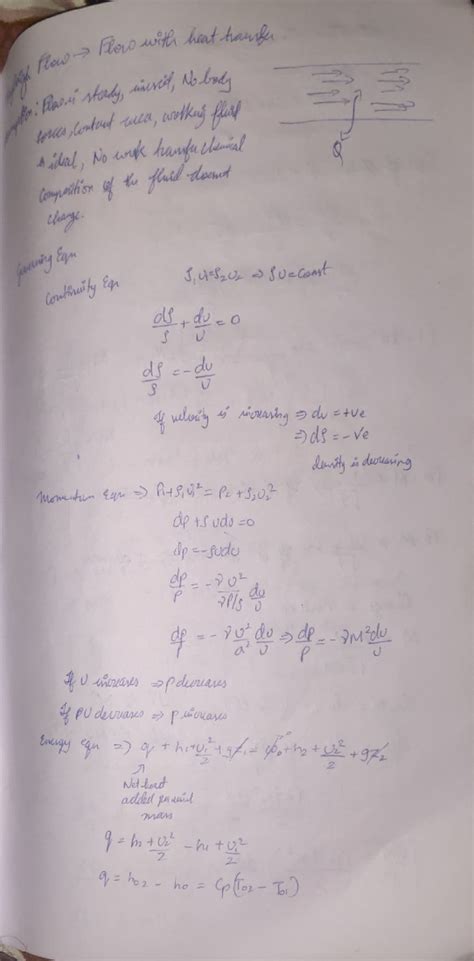 Flow → Flow with heat transfer
Flow is steady, inviscid, No body
forces, constant area, working fluid
is ideal, No work transfer chemical
composition of the fluid doesnot
change.
Q
Governing Eqn
Continuity Eqn ρ₁U₁=ρ₂U₂ ⇒ ρU=Const
dρ/ρ + du/U = 0
dρ/ρ = -du/U
If velocity is increasing ⇒ du = +ve
⇒ dρ = -ve
density is decreasing
Momentum Eqn ⇒ P₁+ρ₁U₁² = P₂+ρ₂U₂²
dp + ρudu = 0
dp = -ρudu
dp/P = -γU²/(γP/ρ) du/U
dp/P = -γ U²/a² du/U ⇒ dp/P = -γM² du/U
If U increases ⇒ p decreases
If U decreases ⇒ p increases
Energy Eqn ⇒ q + h₁ + U₁²/2 + gz₁ = + h₂ + U₂²/2 + gz₂
Net heat
added per unit
mass
q = h₂ + U₂²/2 - h₁ + U₁²/2
q = h₀₂ - h₀ = Cp(T₀₂ - T₀₁)